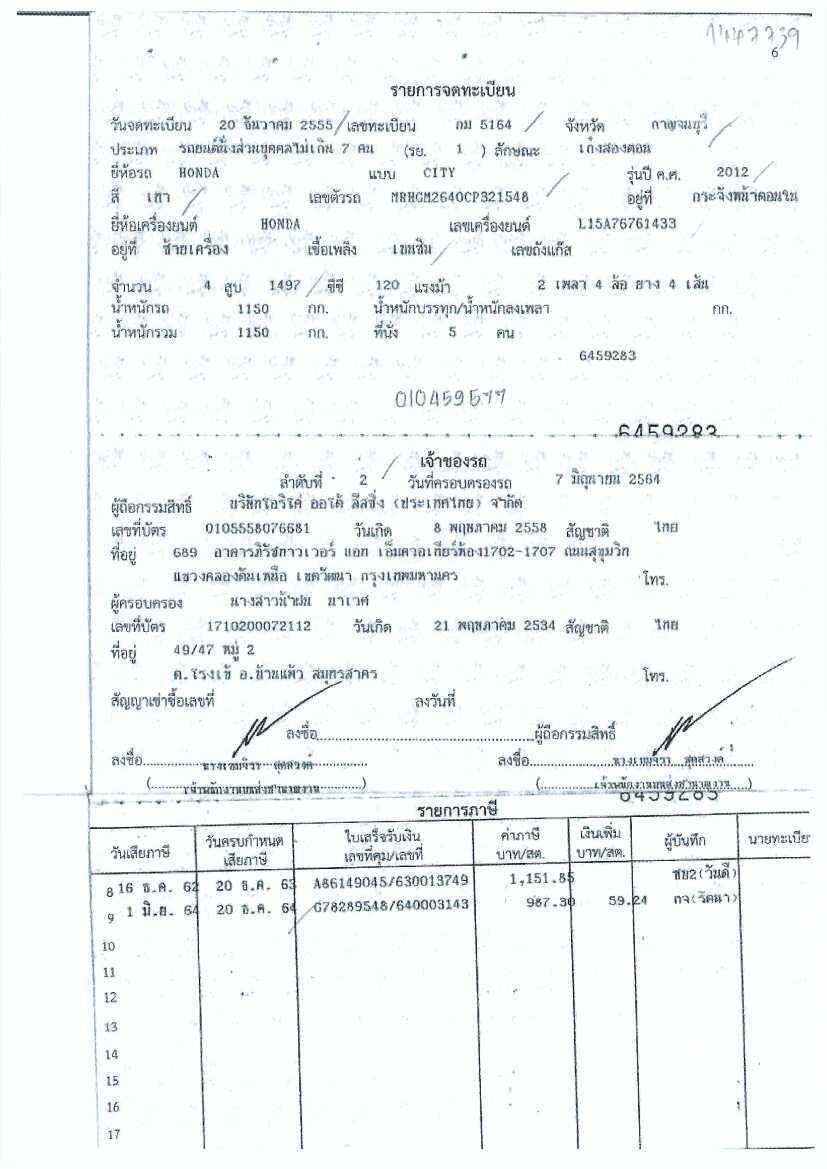 6
รายการจดทะเบียน
วันจดทะเบียน 20 ธันวาคม 2555 เลขทะเบียน กม 5164 จังหวัด กาญจนบุรี
ประเภท รถยนต์นั่งส่วนบุคคลไม่เกิน 7 คน (รย. 1 ) ลักษณะ เก๋งสองตอน
ยี่ห้อรถ HONDA แบบ CITY รุ่นปี ค.ศ. 2012
สี เทา เลขตัวรถ MRHGM2640CP321548 อยู่ที่ กระจังหน้าตอนใน
ยี่ห้อเครื่องยนต์ HONDA เลขเครื่องยนต์ L15A76761433
อยู่ที่ ซ้ายเครื่อง เชื้อเพลิง เบนซิน เลขถังแก๊ส
จำนวน 4 สูบ 1497 ซีซี 120 แรงม้า 2 เพลา 4 ล้อ ยาง 4 เส้น
น้ำหนักรถ 1150 กก. น้ำหนักบรรทุก/น้ำหนักลงเพลา กก.
น้ำหนักรวม 1150 กก. ที่นั่ง 5 คน
6459283
010459577
6459283
เจ้าของรถ
ลำดับที่ 2 วันที่ครอบครองรถ 7 มิถุนายน 2564
ผู้ถือกรรมสิทธิ์ บริษัทโอริโค่ ออโต้ ลีสซิ่ง (ประเทศไทย) จำกัด
เลขที่บัตร 0105558076681 วันเกิด 8 พฤษภาคม 2558 สัญชาติ ไทย
ที่อยู่ 689 อาคารภิรัชทาวเวอร์ แอท เอ็มควอเทียร์ห้อง1702-1707 ถนนสุขุมวิท
แขวงคลองตันเหนือ เขตวัฒนา กรุงเทพมหานคร โทร.
ผู้ครอบครอง นางสาวน้ำฝน นาเวศ
เลขที่บัตร 1710200072112 วันเกิด 21 พฤษภาคม 2534 สัญชาติ ไทย
ที่อยู่ 49/47 หมู่ 2
ต.โรงเข้ อ.บ้านแพ้ว สมุทรสาคร โทร.
สัญญาเช่าซื้อเลขที่ ลงวันที่
ลงชื่อ ผู้ถือกรรมสิทธิ์
ลงชื่อ ลงชื่อ
6459283
รายการภาษี
วันเสียภาษี วันครบกำหนดเสียภาษี ใบเสร็จรับเงิน เลขที่คุม/เลขที่ ค่าภาษี บาท/สต. เงินเพิ่ม บาท/สต. ผู้บันทึก นายทะเบีย
8 16 ธ.ค. 62 20 ธ.ค. 63 A86149045/630013749 1,151.85 ชย2(วันดี)
9 1 มิ.ย. 64 20 ธ.ค. 64 G78289548/640003143 987.30 59.24 กจ(รัตนา)
10
11
12
13
14
15
16
17